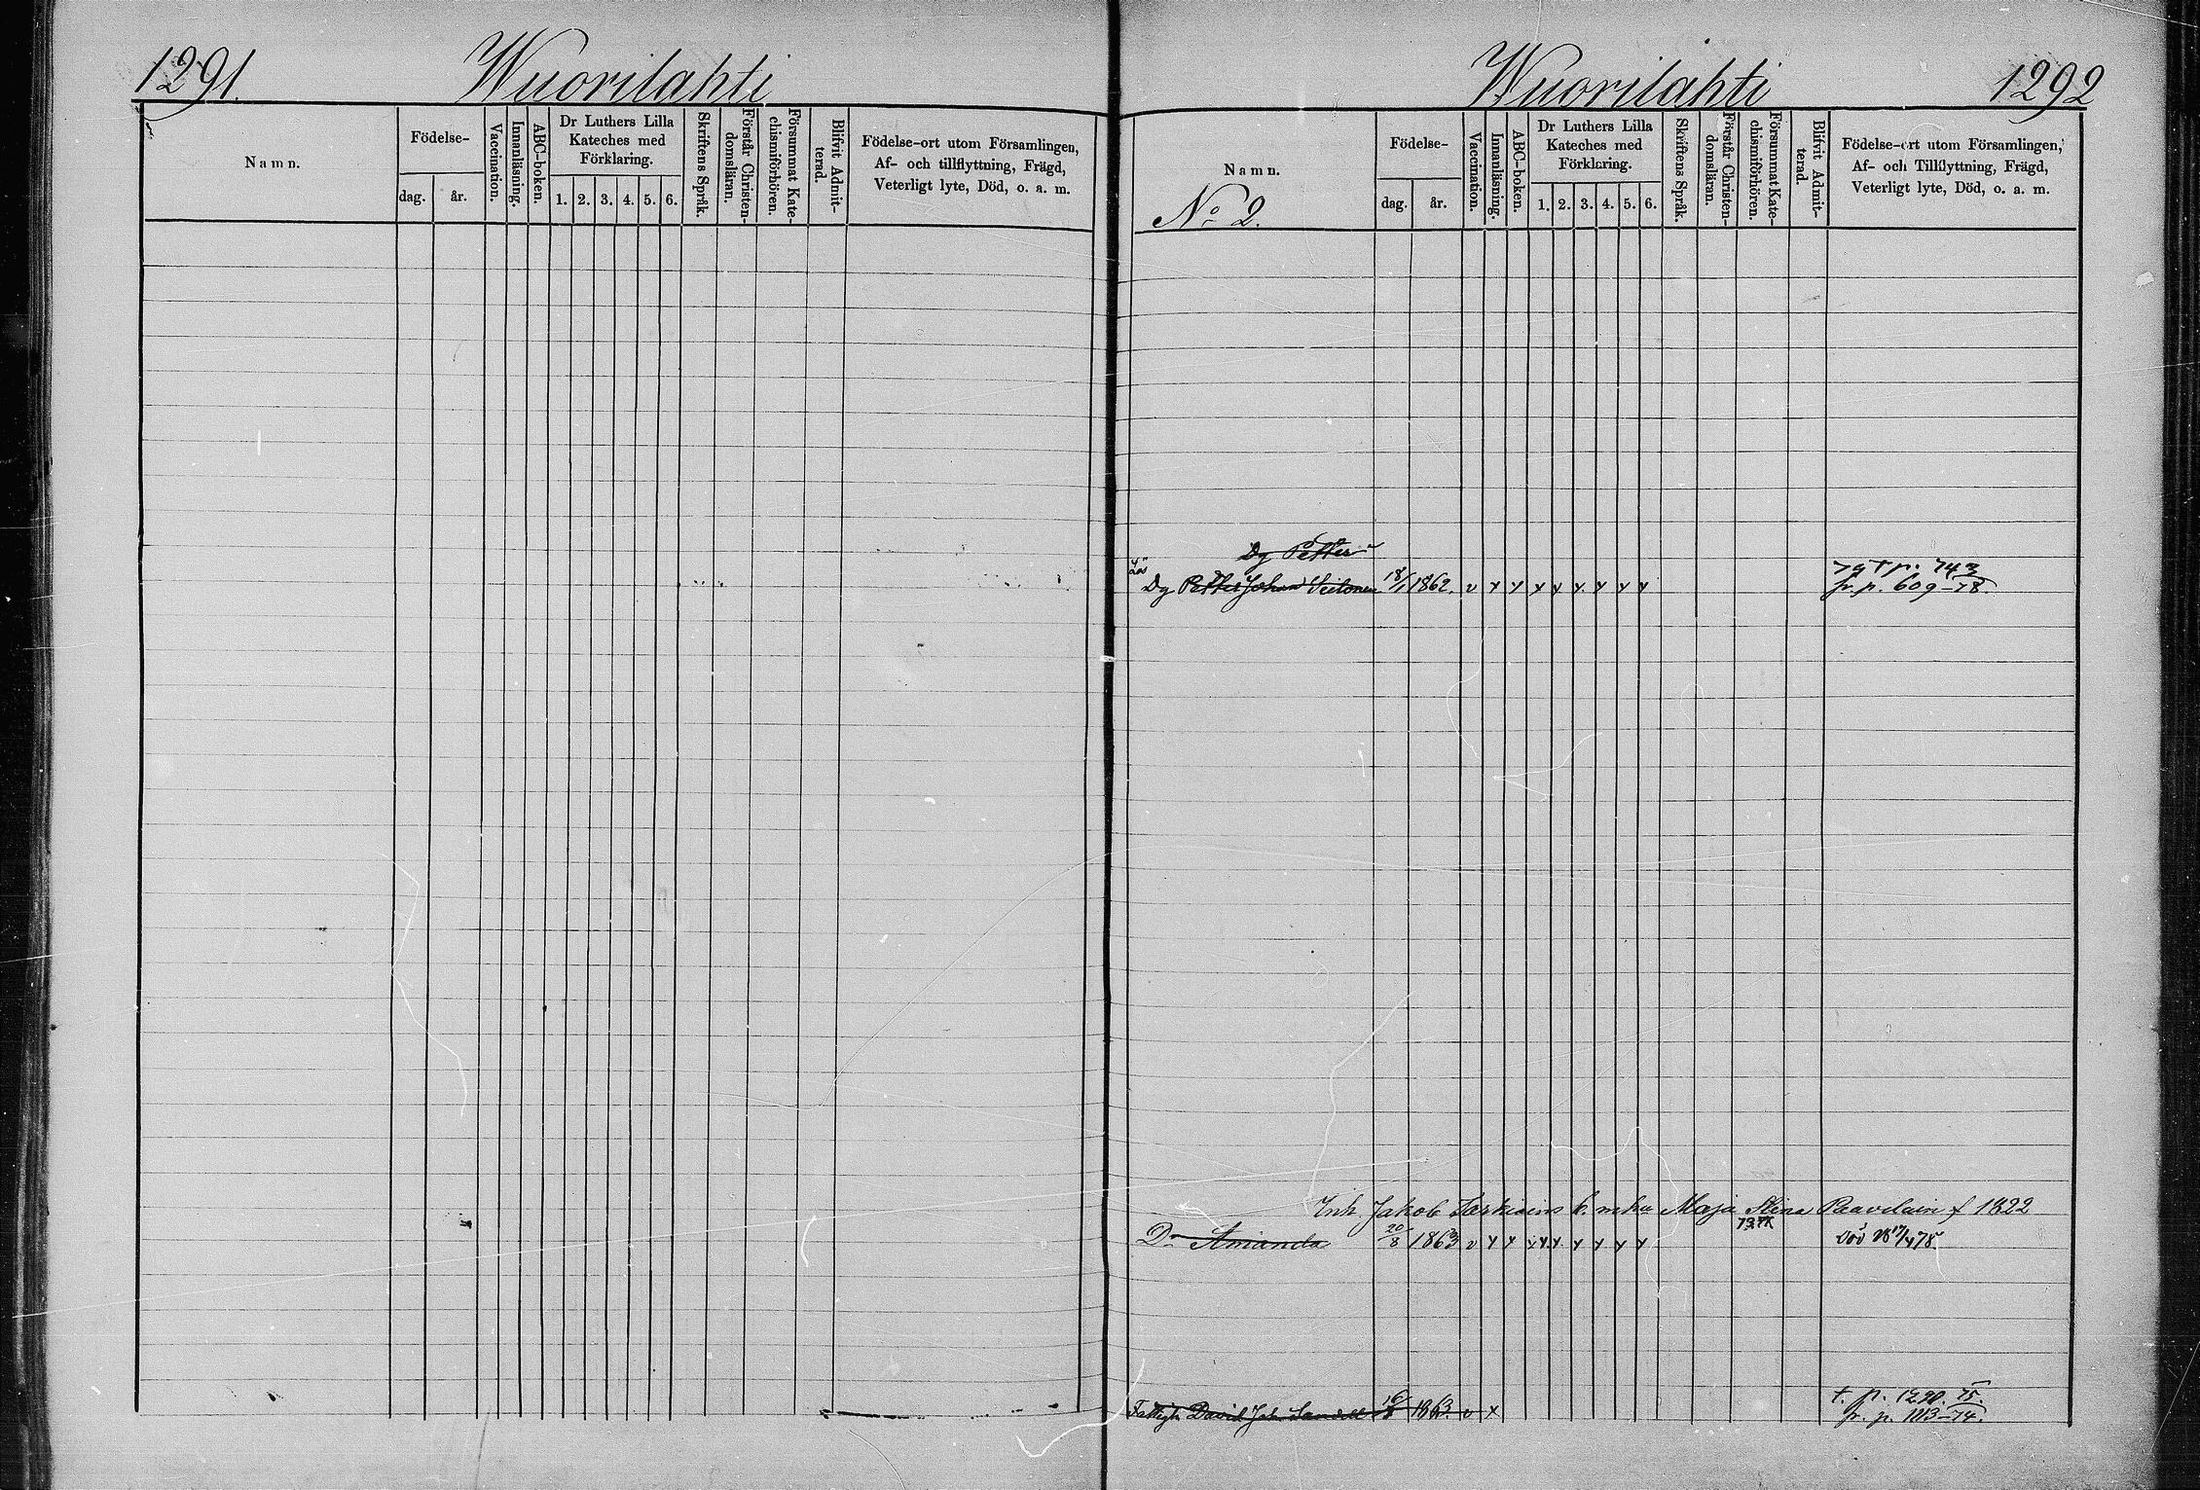 1291.
Wuorilahti
Namn.
Födelse-
dag.
år.
Vaccination.
Innanläsning.
ABC-boken.
Dr Luthers Lilla
Kateches med
Förklaring.
1. 2. 3. 4. 5. 6.
Skriftens Språk.
Förstår Christen-
domsläran.
Försummat Kate-
chismiförhören.
Blifvit Admit-
terad.
Födelse-ort utom Församlingen,
Af- och tillflyttning, Frägd,
Veterligt lyte, Död, o. a. m.
Wuorilahti
1292
Namn.
No 2.
Födelse-
dag.
år.
Vaccination.
Innanläsning.
ABC-boken.
Dr Luthers Lilla
Kateches med
Förklaring.
1. 2. 3. 4. 5. 6.
Skriftens Språk.
Förstår Christen-
domsläran.
Försummat Kate-
chismiförhören.
Blifvit Admit-
terad.
Födelse-ort utom Församlingen,
Af- och Tillflyttning, Frägd,
Veterligt lyte, Död, o. a. m.
Dg Petter
79 t p. 743
Dg Petter Johan 18/1 1862. v x x x x x x x x fr. p. 609-78.
Inh. Jakob Maja Stina Paavilain f 1822
Dr Amanda 20/8 1863 v x x x x x x x x
t. p. 1290. 75.
David Joh Sandell 16/8 1863. v x fr. p. 1113-74.